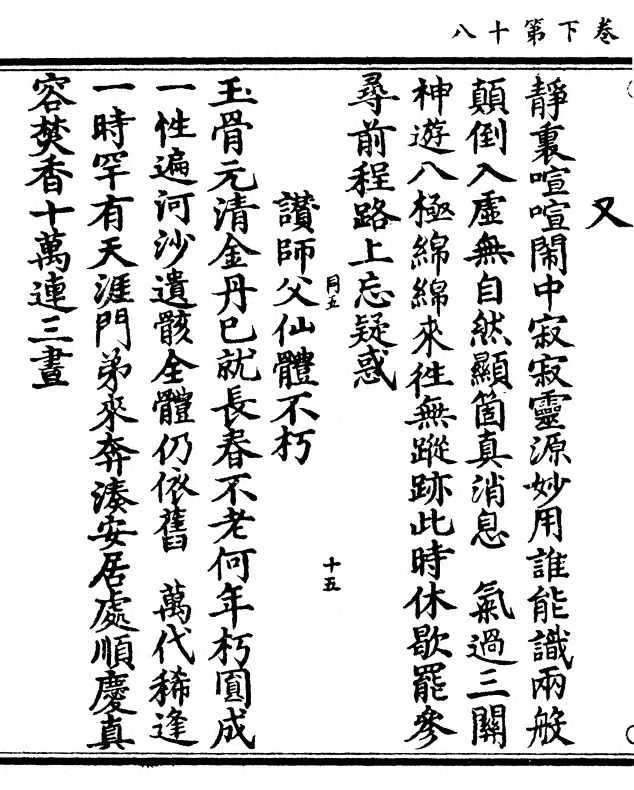 卷下第十八
又
靜裏喧喧鬧中寂寂靈源妙用誰能識兩般
顛倒入虛無自然顯箇真消息　氣過三關
神遊八極綿綿來往無蹤跡此時休歇罷參
尋前程路上忘疑惑
十五
讃師父仙體不朽
同五
玉骨元清金丹已就長春不老何年朽圓成
一性遍河沙遺骸全體仍依舊　萬代稀逢
一時罕有天涯門弟來奔湊安居處順慶真
容焚香十萬連三晝